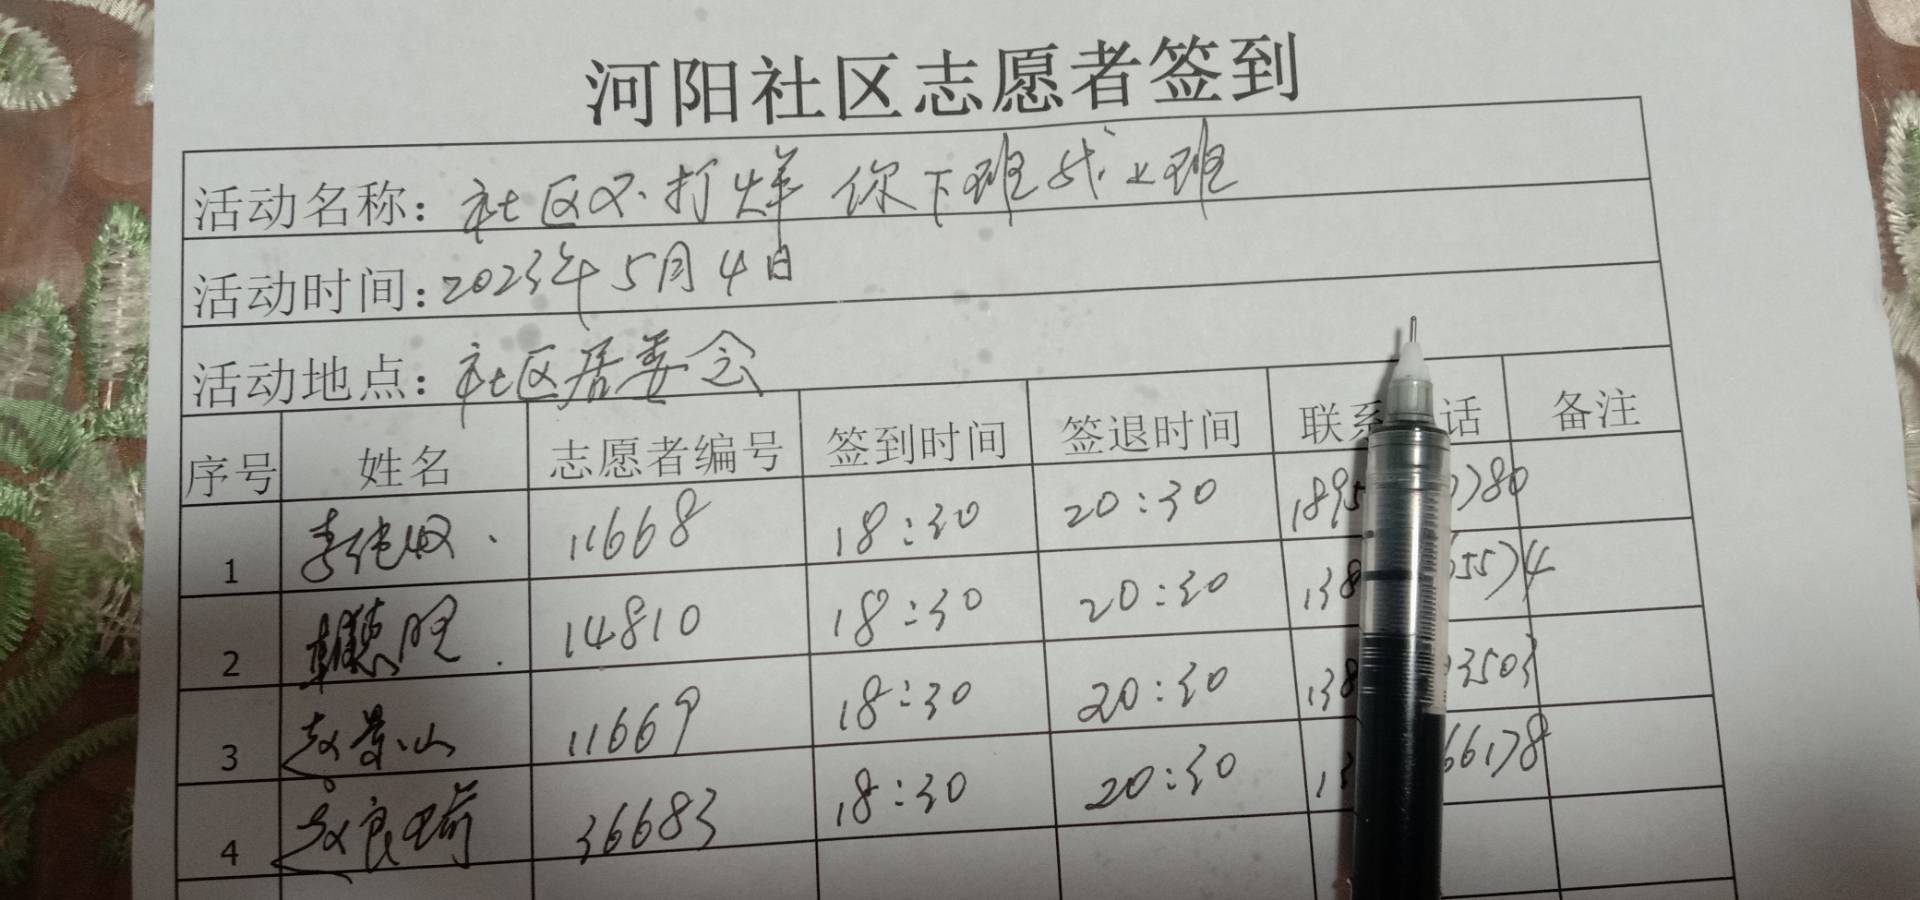 河阳社区志愿者签到
活动名称：社区不打烊 你下班我上班
活动时间：2023年5月4日
活动地点：社区居委会
序号 姓名 志愿者编号 签到时间 签退时间 联系 话 备注
1 11668 18:30 20:30 1895 780
2 14810 18:30 20:30 138 5574
3 赵景山 11669 18:30 20:30 138 3503
4 赵良瑜 36683 18:30 20:30 13 66178